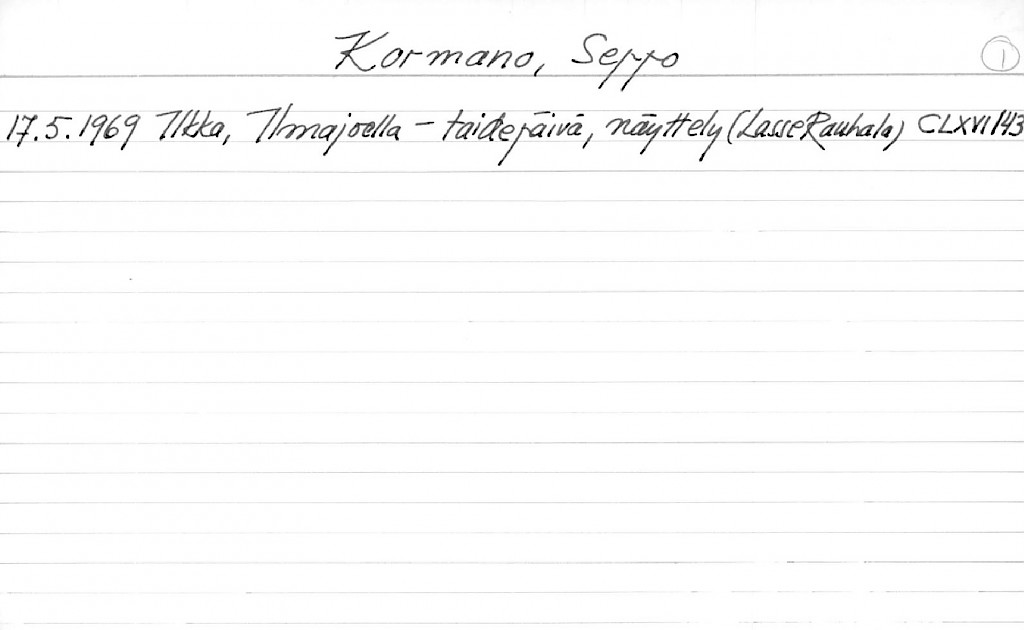 Kormano, Seppo
1
17.5.1969 Ilkka, Ilmajoella - taidepäivä, näyttely (Lasse Rauhala) CLXVI 143